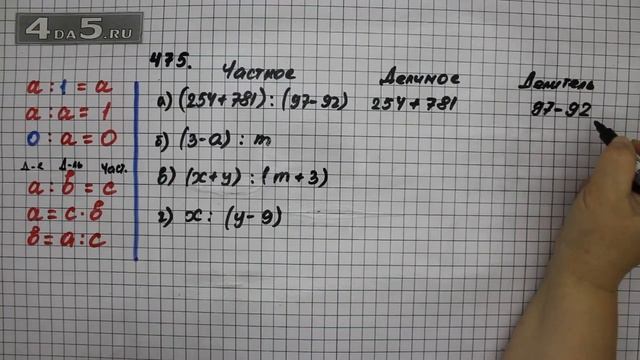 4DA5.RU
475.
Частное Делимое Делитель
а) (254+781) : (97-92) 254+781 97-92
б) (3-а) : m
в) (x+y) : (m+3)
г) x : (y-9)
a : 1 = a
a : a = 1
0 : a = 0
Д-е Д-ль Част.
a : b = c
a = c · b
b = a : c